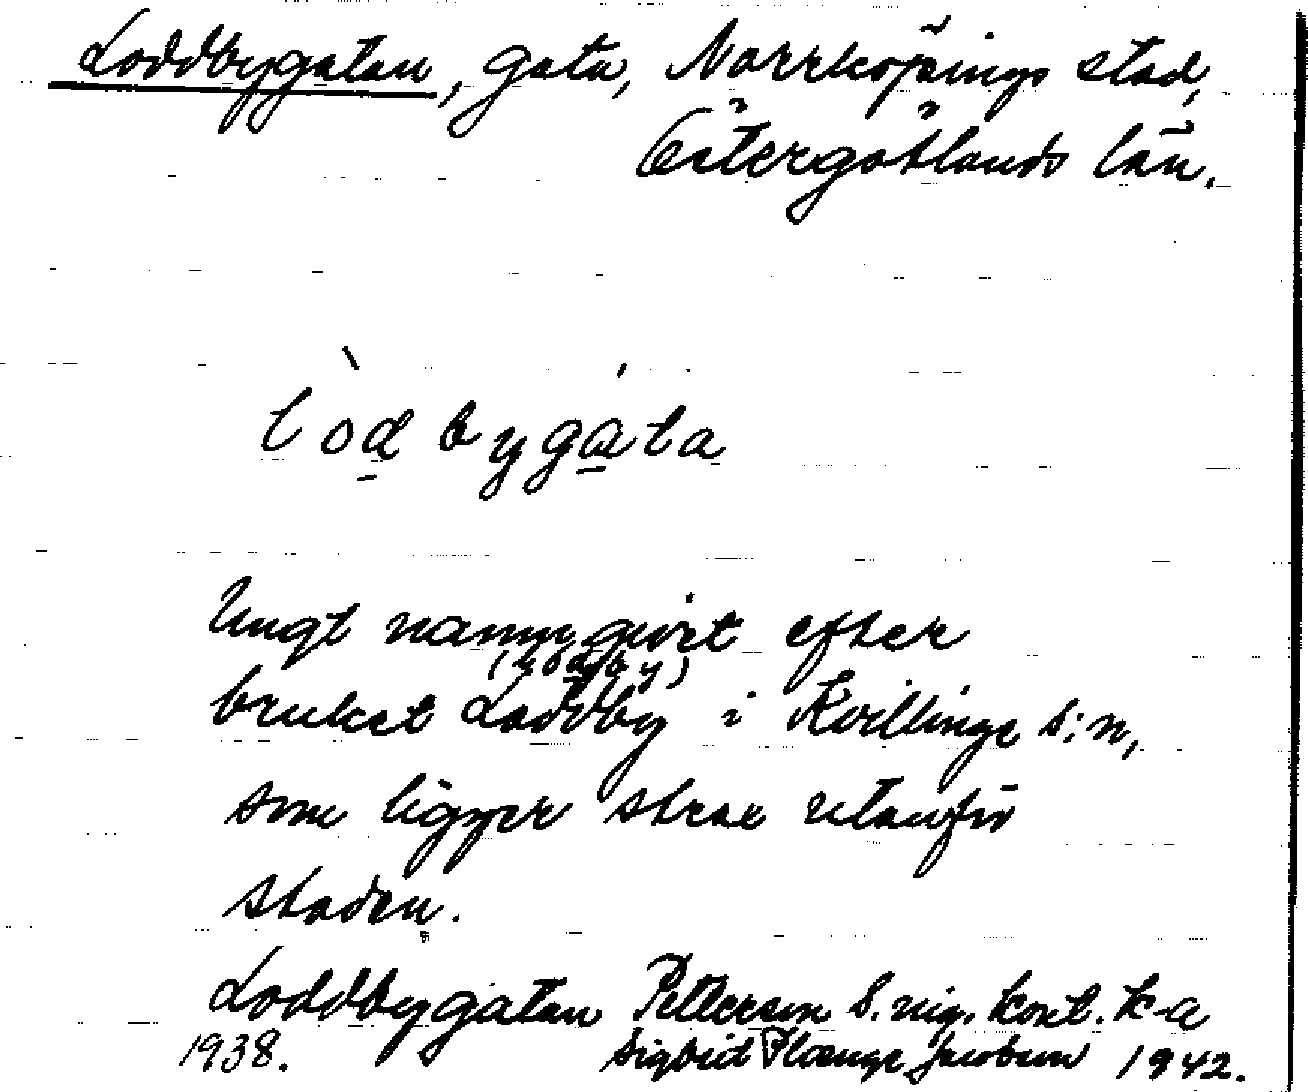 Loddbygatan, gata, Norrköpings stad,
Östergötlands län.
lòdbygáta
Ungt namn givet efter
(lòdby)
bruket Loddby i Kvillinge s:n,
som ligger strax utanför
staden.
Loddbygatan Pettersson S. kort. k-a
1938. Sigurd Plænge Jacobson 1942.